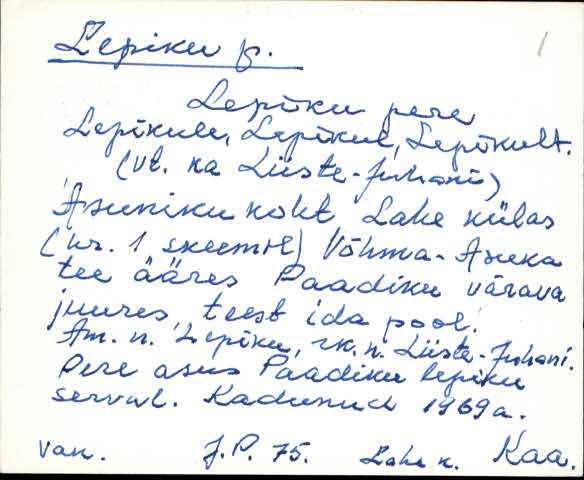 Lepiku p.
1
Lepiku pere
Lepikule, Lepikul, Lepikult.
(vt. ka Liiste-Juhani)
Asuniku koht Lahe külas
(nr. 1 skeemil) Võhma-Asuka
tee ääres Paadiku värava
juures, teest ida pool.
Am. n. Lepiku, rk. n. Liiste-Juhani.
Pere asus Paadiku lepiku
serval. Kadunud 1969a.
van. J.P. 75. Lahe k. Kaa.